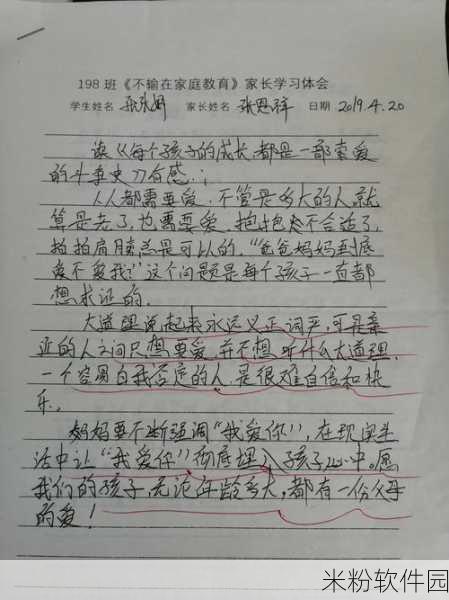 198班《不输在家庭教育》家长学习体会
学生姓名 张 家长姓名 张恩祥 日期 2019.4.20
读《每个孩子的成长,都是一部索爱
的斗争史》有感:
人人都需要爱,不管是多大的人,就
算是老了,也需要爱,抱抱太不合适了,
拍拍肩膀总是可以的,“爸爸妈妈到底
爱不爱我?”这个问题是每个孩子一直都
想求证的.
大道理说起来永远义正词严,可是亲
近的人之间只想要爱,并不想听什么大道理.
一个容易自我否定的人,是很难自信和快
乐。
妈妈要不断强调“我爱你”,在现实生
活中让“我爱你”彻底埋入孩子心中。愿
我们的孩子,无论年龄多大,都有一份父母
的爱!
米粉软件园